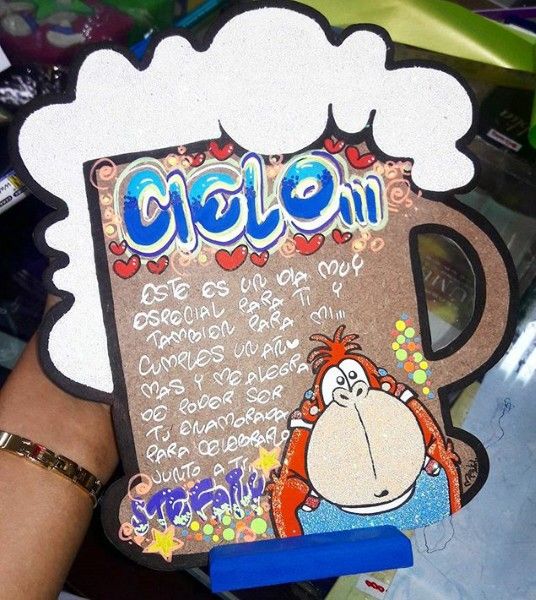 CIELO...
ESTE ES UN DIA MUY
ESPECIAL PARA TI Y
TAMBIEN PARA MI...
CUMPLES UN AÑO
MAS Y ME ALEGRA
DE PODER SER
TU ENAMORADA
PARA CELEBRARLO
JUNTO A TI
STEFANY